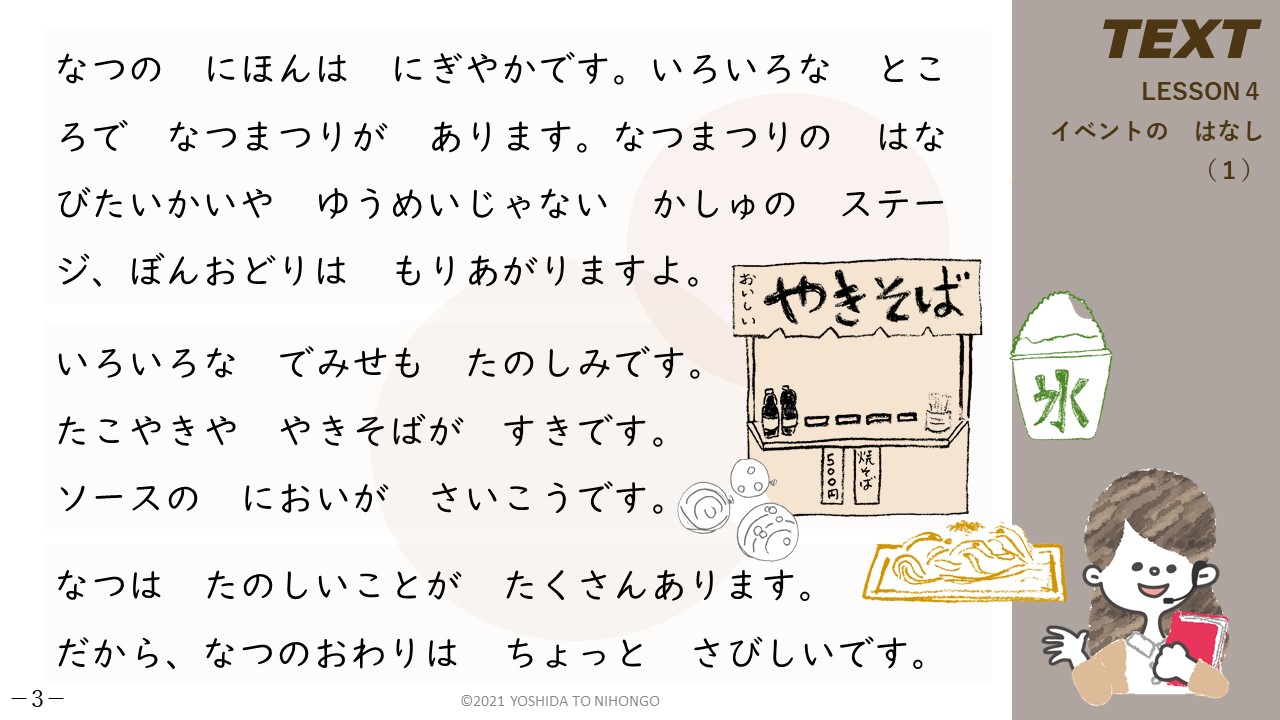 なつの　にほんは　にぎやかです。いろいろな　とこ
ろで　なつまつりが　あります。なつまつりの　はな
びたいかいや　ゆうめいじゃない　かしゅの　ステー
ジ、ぼんおどりは　もりあがりますよ。
いろいろな　でみせも　たのしみです。
たこやきや　やきそばが　すきです。
ソースの　においが　さいこうです。
なつは　たのしいことが　たくさんあります。
だから、なつのおわりは　ちょっと　さびしいです。
おいしい
やきそば
500円
焼そば
TEXT
LESSON 4
イベントの　はなし
（１）
氷
－3－
©2021 YOSHIDA TO NIHONGO